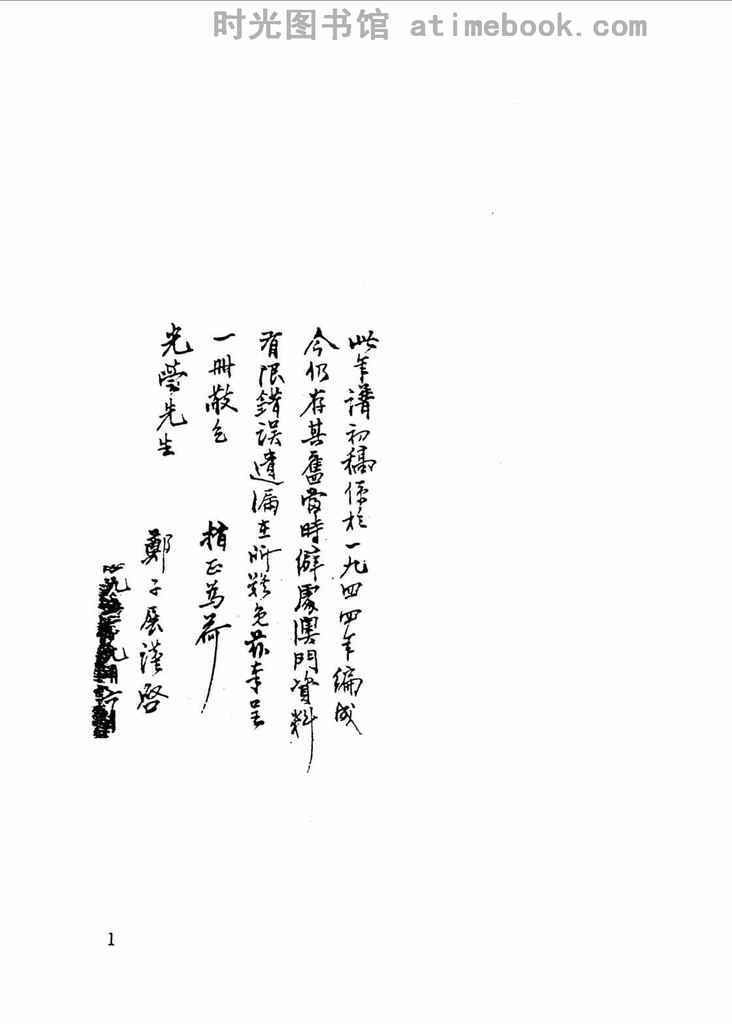 时光图书馆 atimebook.com
此年谱初稿係於一九四四年编成
今仍存其舊當時僻處澳門資料
有限錯誤遺漏在所難免茲奉呈
一冊敬乞
指正為荷
光瑩先生
鄭子展謹啓
1